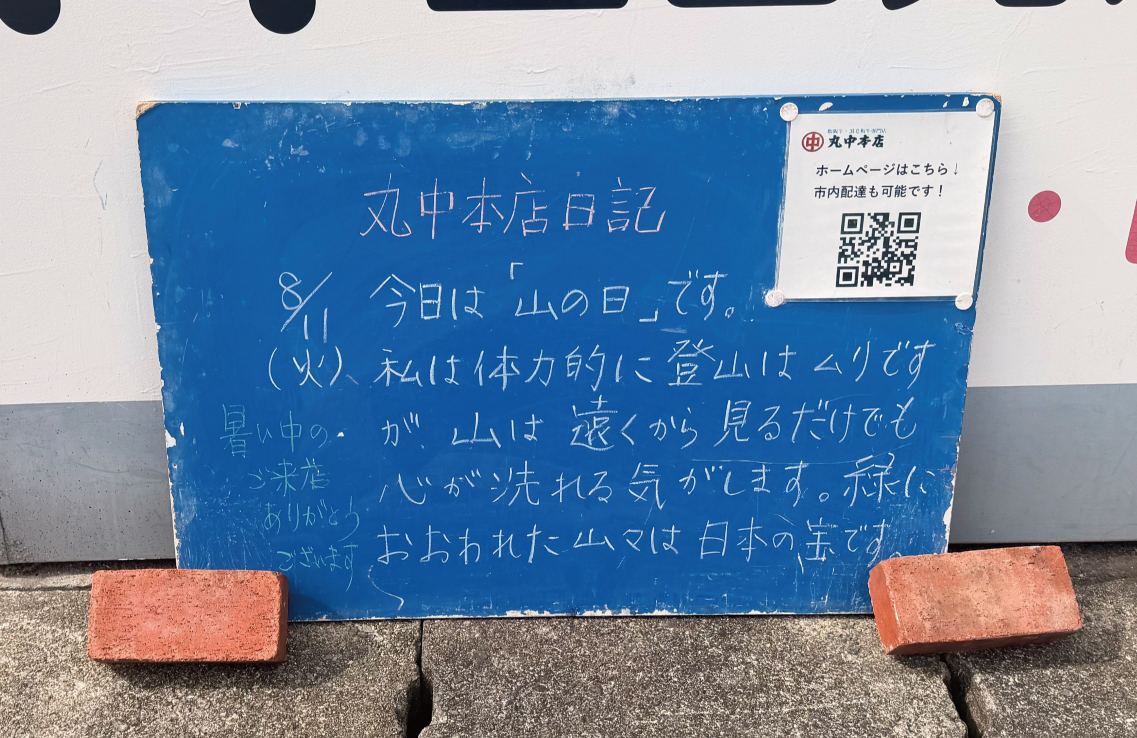 丸中本店
ホームページはこちら↓
市内配達も可能です！
丸中本店日記
8/11
(火)
今日は「山の日」です。
私は体力的に登山はムリです
が、山は遠くから見るだけでも
心が洗れる気がします。緑に
おおわれた山々は日本の宝です。
暑い中の
ご来店
ありがとう
ございます